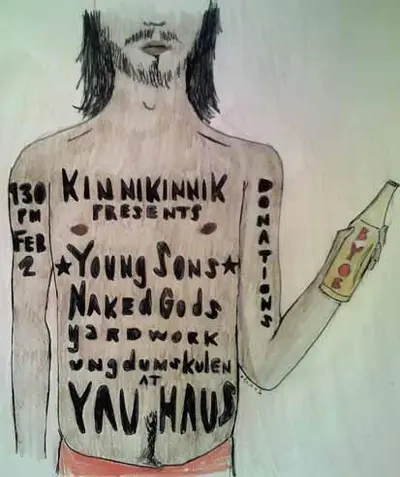 KINNIKINNIK
PRESENTS
130
PM
FEB
2
★YOUNG SONS★
NAKED GODS
yARDWORK
UNgDUMSKULEN
AT
YAU HAUS
DONATIONS
BYOB